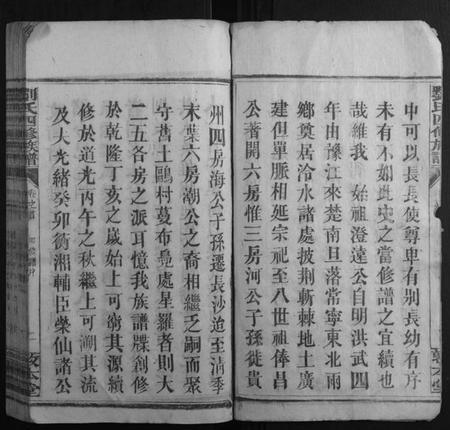 中可以長長使尊卑有別長幼有序
未有不如此史之當修譜之宜續也
哉維我　始祖澄遠公自明洪武四
年由豫江來楚南旦落常寧東北兩
鄉奠居冷水諸處披荆斬棘地土廣
建但單脈相延宗祀至八世祖俸昌
公著開六房惟三房河公子孫徙貴
州四房海公子孫遷長沙迨至淸季
末葉六房潮公之裔相繼乏嗣而聚
守舊土鷗村蔓布疊處星羅者則大
二五各房之派耳憶我族譜牒創修
於乾隆丁亥之歲始上可窮其源續
修於道光丙午之秋繼上可溯其流
及夫光緒癸卯衡湘輔臣榮仙諸公
劉氏四修族譜
敦本堂